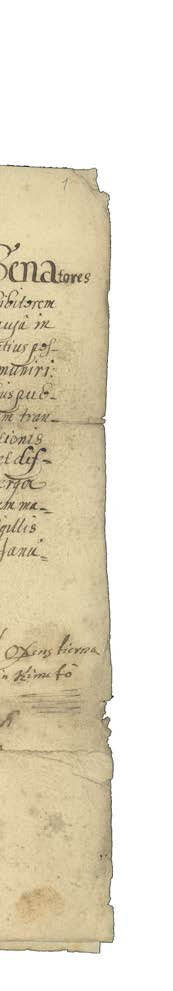 1
Senatores
ibitorem
ausâ in
tius pos-
muniri:
us pub-
m tran-
tionis
et dis-
erga
m ma-
gillis
Janu-
Oxenstierna
in Kimito